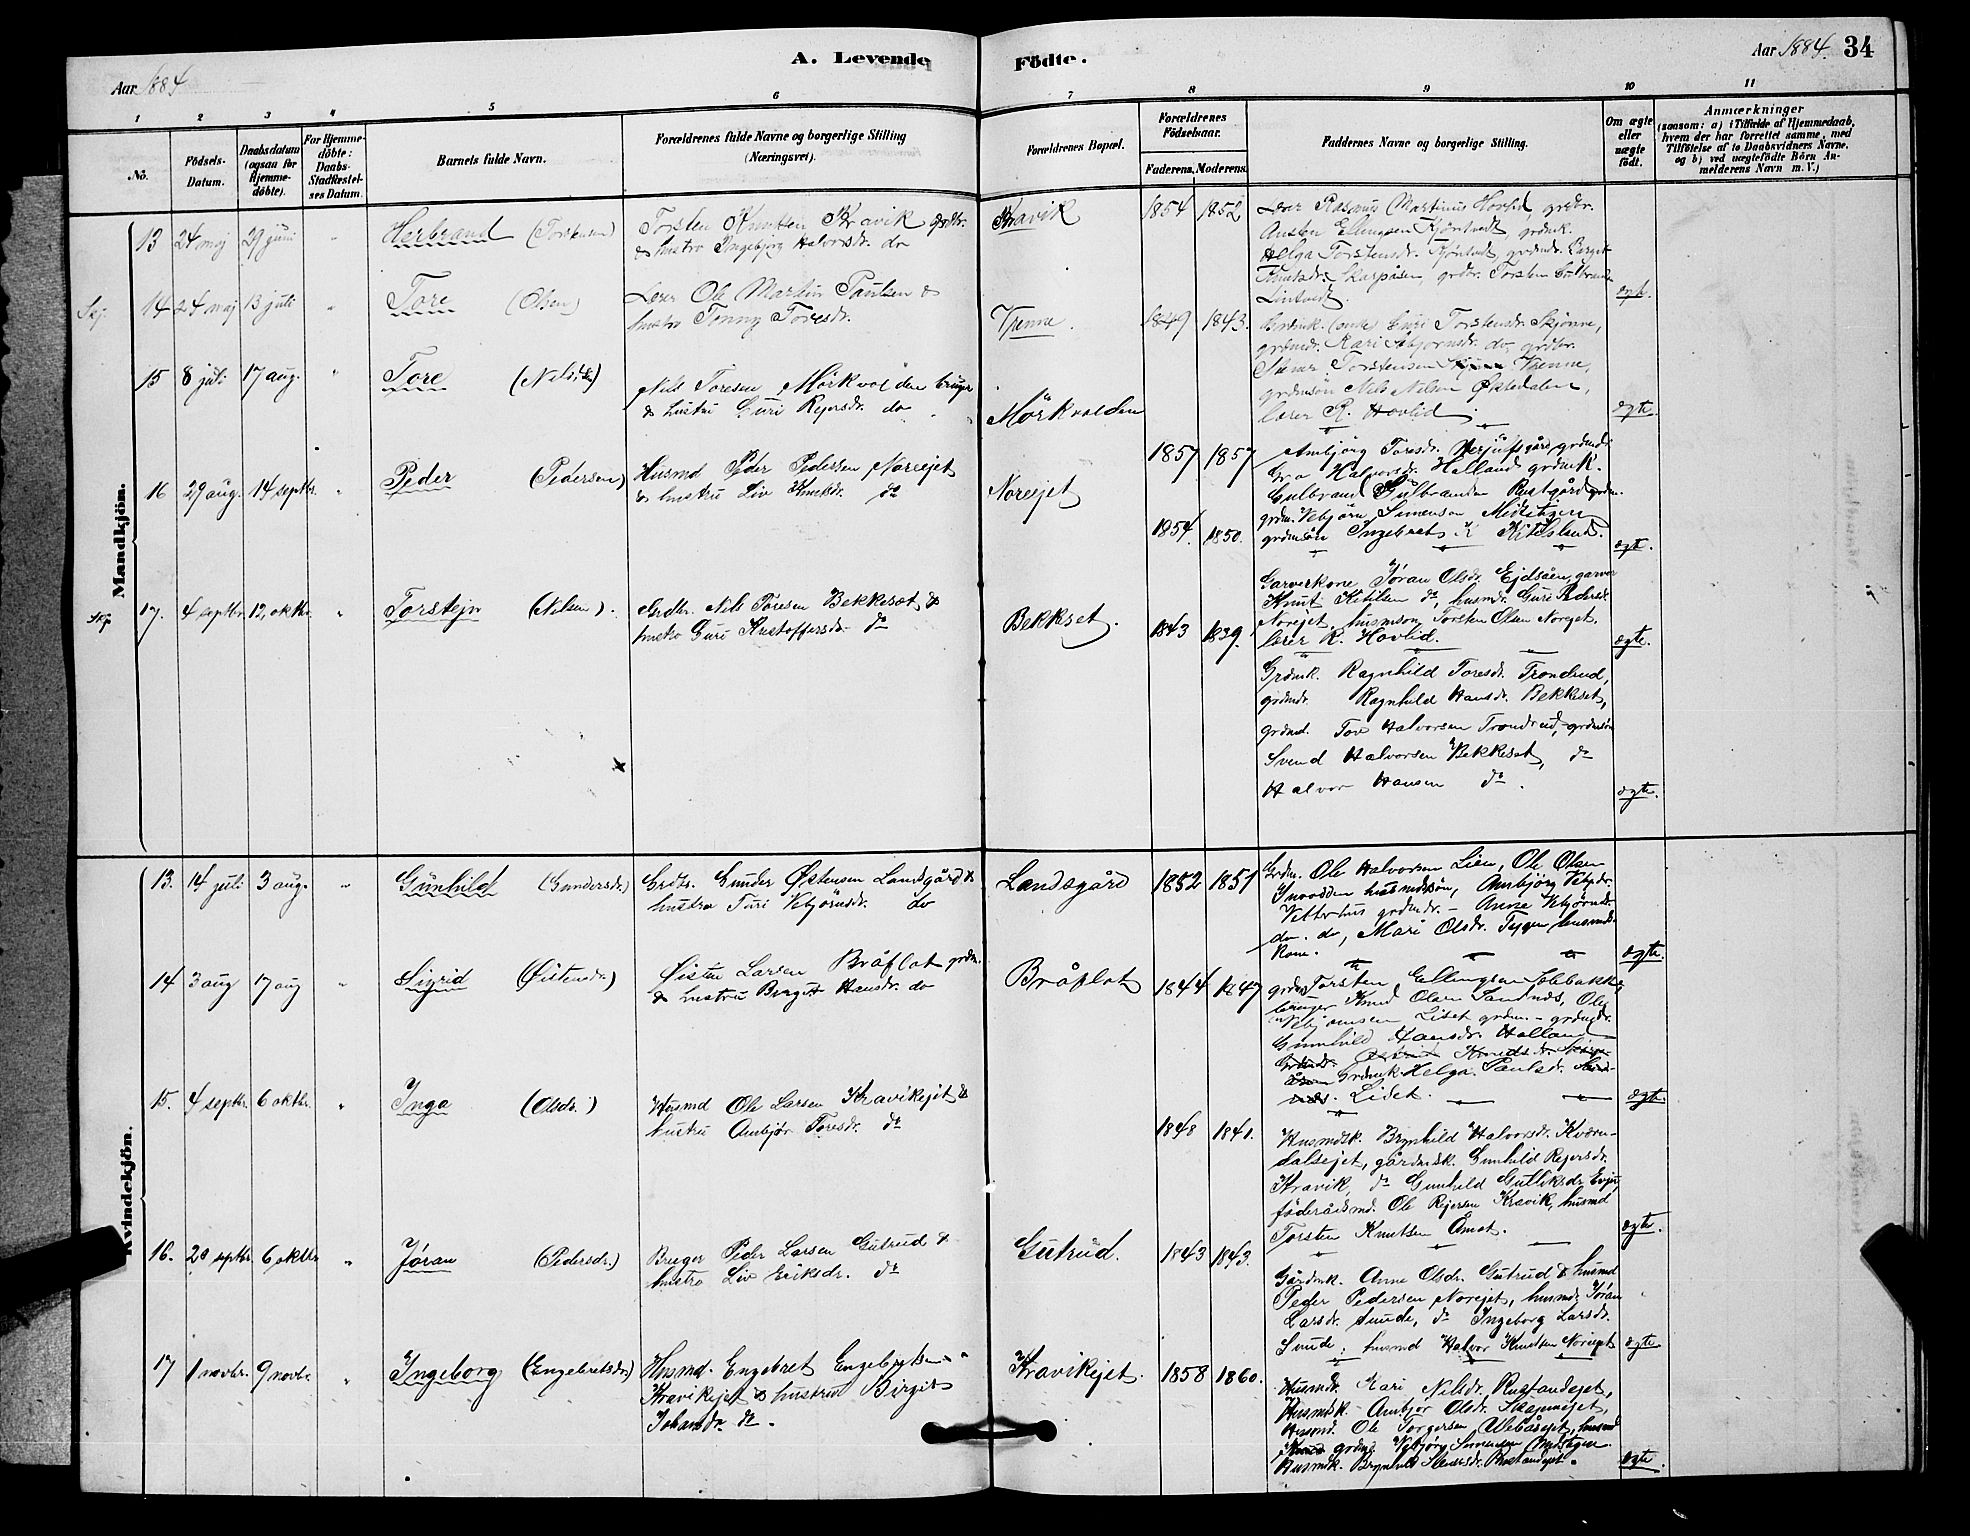 Aar 1884
A. Levende
Födte.
Aar 1884. 34
1 2 3 4 5 6 7 8 9 10 11
No.
Födsels-
Datum.
Daabsdatum
(ogsaa for
Hjemme-
döbte).
For Hjemme-
döbte:
Daabs-
Stadfæstel-
ses Datum.
Barnets fulde Navn.
Forældrenes fulde Navne og borgerlige Stilling
(Næringsvei).
Forældrenes Bopæl.
Forældrenes
Födselsaar.
Faderens. Moderens.
Faddernes Navne og borgerlige Stilling.
Om ægte
eller
uægte
födt.
Anmærkninger
(saasom: a) i Tilfælde af Hjemmedaab,
hvem der har forrettet samme, med
Tilföielse af to Daabsvidners Navne,
og b) ved uægtefödte Börn An-
melderens Navn m. V.)
Mandkjön.
13 24 maj 29 juni " Herbrand (Torstensen)
Torsten Knutsen Kravik grdbr.
& hustro Ingebjørg Halvorsdr. do
Kravik 1854 1852
Lærer Rasmus Martinus Hovlid, grdbr.
Helga Torstensdr.
ægte.
14 24 maj 13 juli " Tore (Olsen)
Lærer Ole Martin Paulsen &
hustro Tonny Toresdr.
Vrenne. 1849 1843.
Torstensdr. Skjønne,
grdmdr. Kari do, grdbr.
Torstensen Vrenne,
grdmsön Nils Nilsen
lærer R. Hovlid
ægte.
15 8 juli 17 aug. " Tore (Nilsen)
Nils Toresen Mörkvolden bruger
& hustru Guri Rejersdr. do
Mörkvolden 1857 1857
Ambjörg Toresdr.
Gro Halvorsdr. Helland grdmk.
Gulbrand Gulbrandsen Rustgård
grdm. Vebjörn Simenson Midtstigen
grdmsön
ægte.
16 29 aug. 14 septbr. " Peder (Pedersen)
Husmd Peder Pedersen Norejet
& hustru Liv Knutsdr. do
Norejet 1854. 1850.
Garverkone Jöran Olsdr. Ejdsåen, garver
Knut Ketilsen do, husmdr. Guri Pedersdr.
Norejet, husmson Torsten Olsen Norejet,
lærer R. Hovlid.
ægte.
17. 4 septbr. 12. oktbr. " Torstejn (Nilsen).
Grdbr. Nils Toresen Bekkeset &
hustro Guri Kristoffersdr. do
Bekkeset. 1843 1839.
Grdmk. Ragnhild Toresdr. Trondrud,
grdmdr. Ragnhild Hansdr. Bekkeset,
grdmd. Tov Halvorsen Trondrud, grdmsön
Svend Halvorsen Bekkeset, do
Halvor Hansen do.
ægte.
Kvindekjön.
13. 14 juli 3 aug. " Gunhild (Gundersdr.)
Grdbr. Gunder Østensen Landsgård &
hustro Turi Vebjörnsdr. do
Landsgård 1852 1851
Grdm. Ole Halvorsen Lien, Ole Olsen
husmdssön, Ambjörg
grdmdr. - Anne Vebjörnsdr.
do. do, Mari Olsdr. husmds-
kone.
ægte.
14 3 aug 17 aug " Sigrid (Östensdr.)
Østen Larsen Bråflat grdm.
& hustru Birgit Hansdr. do
Bråflat 1844 1847
Torsten Ellingsen
bruger Knud Olsen Sandnes, Ole
Vebjörnsen Lidet grdm. - grdmdr.
Gunnhild Hansdr. Holland
Grdmk. Helga Paulsdr.
Lidet.
ægte.
15. 4 septbr. 6 oktbr. " Inga (Olsdr.)
Husmd Ole Larsen Kravikejet &
hustru Ambjør Toresdr. do
1848 1840.
Husmdsk. Brynhild Halvorsdr. Kværn-
dalsejet, gårdmsk. Gunhild Rejersdr.
Kravik, do Gunhild Gulliksdr. Evju,
föderådsmd. Ole Rejersen Kravik, husmd
Torsten Knutsen Ømot.
ægte.
16. 20 septbr. 6 oktbr " Jöran (Pedersdr.)
Bruger Peder Larsen Gutrud &
hustro Liv Eriksdr. do
Gutrud. 1843 1843.
Gårdmk. Anne Olsdr. Gutrud & husmd
Peder Pedersen Norejet, husmdr Jöran
Larsdr. Smude, do Ingeborg Larsdr.
Smude, husmd Halvor Knutsen Norejet
ægte.
17 1 novbr. 9 novbr. " Ingeborg (Engebretsdr.)
Husmd. Engebret Engebretsen
Kravikejet & hustru Birgit
Johansdr. do.
Kravikejet. 1858 1860.
Husmdr. Kari Nilsdr. Rustandejet,
Husmdsk. Ambjør Olsdr.
Husmd. Ole Torgersen husmd
Husmdk. Brynhild Rustandejet.
ægte.